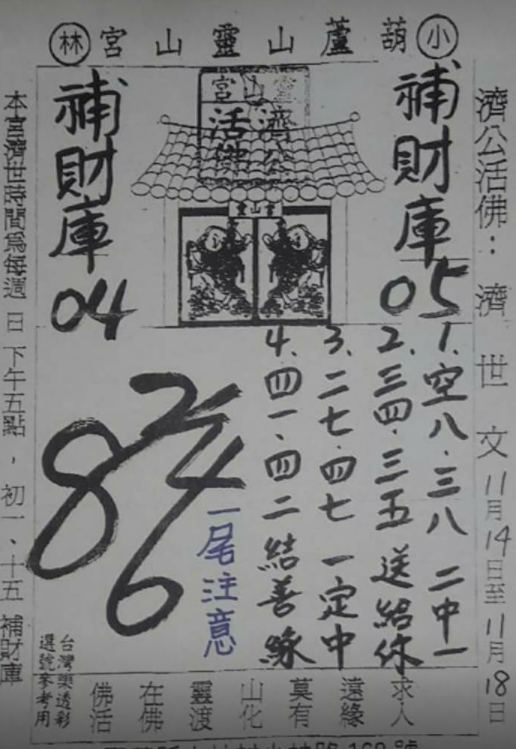 小林
葫蘆山靈山宮
濟公活佛：濟世文 11月14日至11月18日
補財庫 05
濟公活佛
靈山宮
補財庫 04
1、空八、三八 二中一
2、三四、三五 送給你
3、二七、四七 一定中
4、四一、四二 結善緣
一尾注意
2
4
8
6
求人
遠緣
莫有
山化
靈渡
在佛
佛活
台灣樂透彩
選號參考用
本宮濟世時間為每週 日 下午五點，初一、十五 補財庫